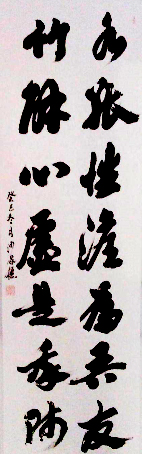 水能性淡為吾友
竹解心虛是我師
癸巳冬月